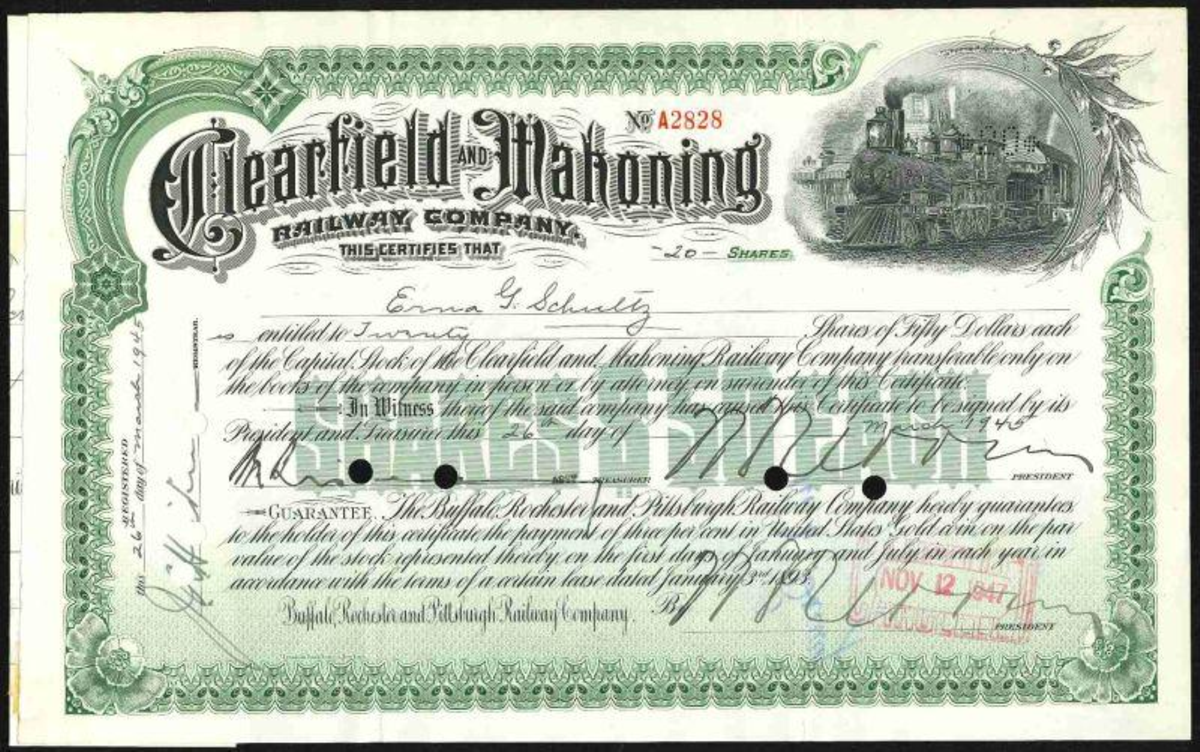 No A2828
Clearfield AND Mahoning
RAILWAY COMPANY.
THIS CERTIFIES THAT
-20- SHARES
Erna G. Schultz
is entitled to Twenty Shares of Fifty Dollars each
of the Capital Stock of the Clearfield and Mahoning Railway Company transferable only on
the books of the company in person or by attorney on surrender of this Certificate
In Witness thereof the said company has caused this Certificate to be signed by its
President and Treasurer this 26th day of March 1945
ASST TREASURER PRESIDENT
GUARANTEE. The Buffalo Rochester and Pittsburgh Railway Company hereby guarantees
to the holder of this certificate the payment of three per cent in United States Gold coin on the par
value of the stock represented thereby on the first days of January and July in each year in
accordance with the terms of a certain lease dated January 3rd 1893
Buffalo, Rochester and Pittsburgh Railway Company. By
PRESIDENT
NOV 12 1947
REGISTERED
this 26th day of March 1945
REGISTRAR.
SHARES $50 EACH